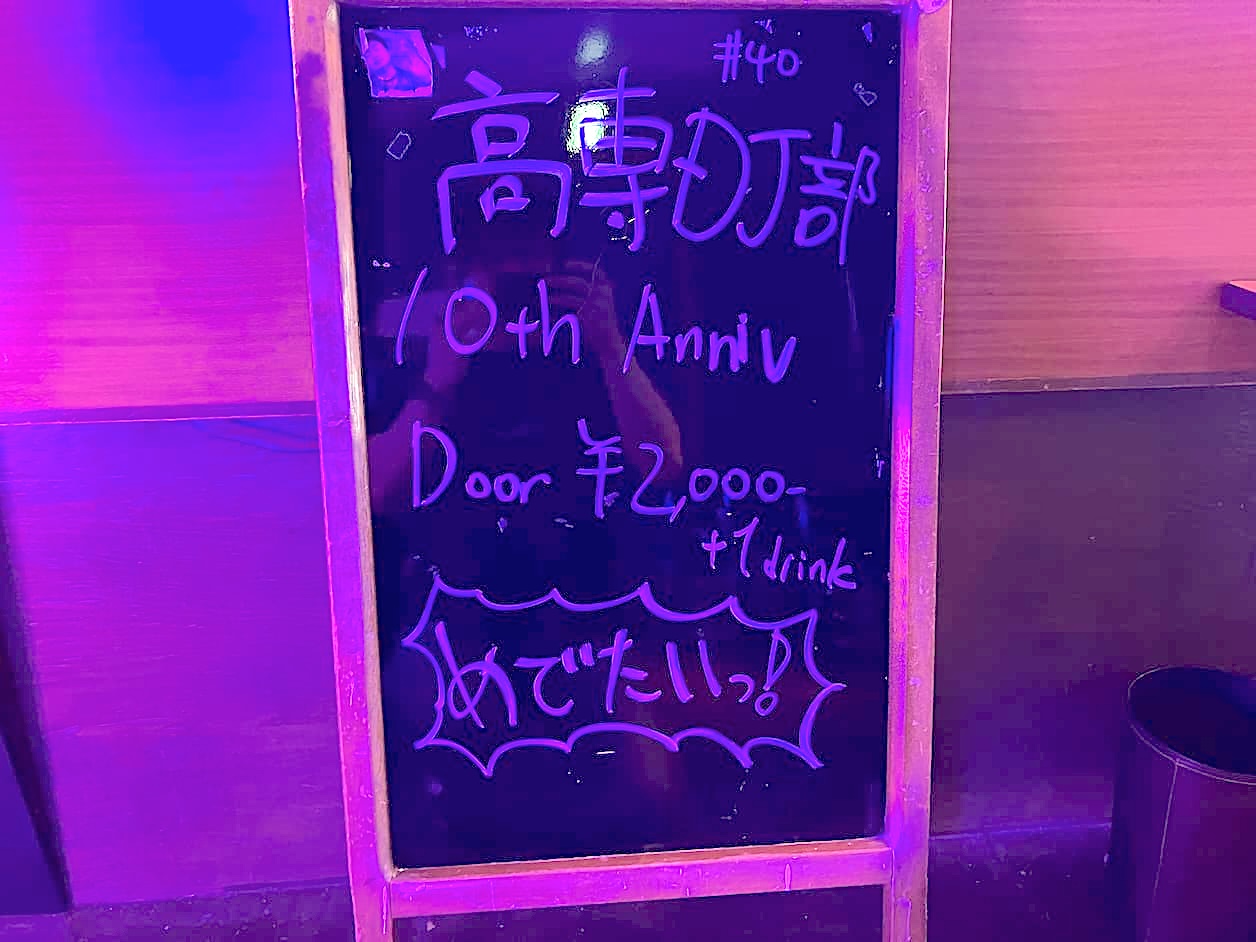 #40
高専DJ部
10th Anniv
Door ¥2,000-
+1drink
めでたいっ!